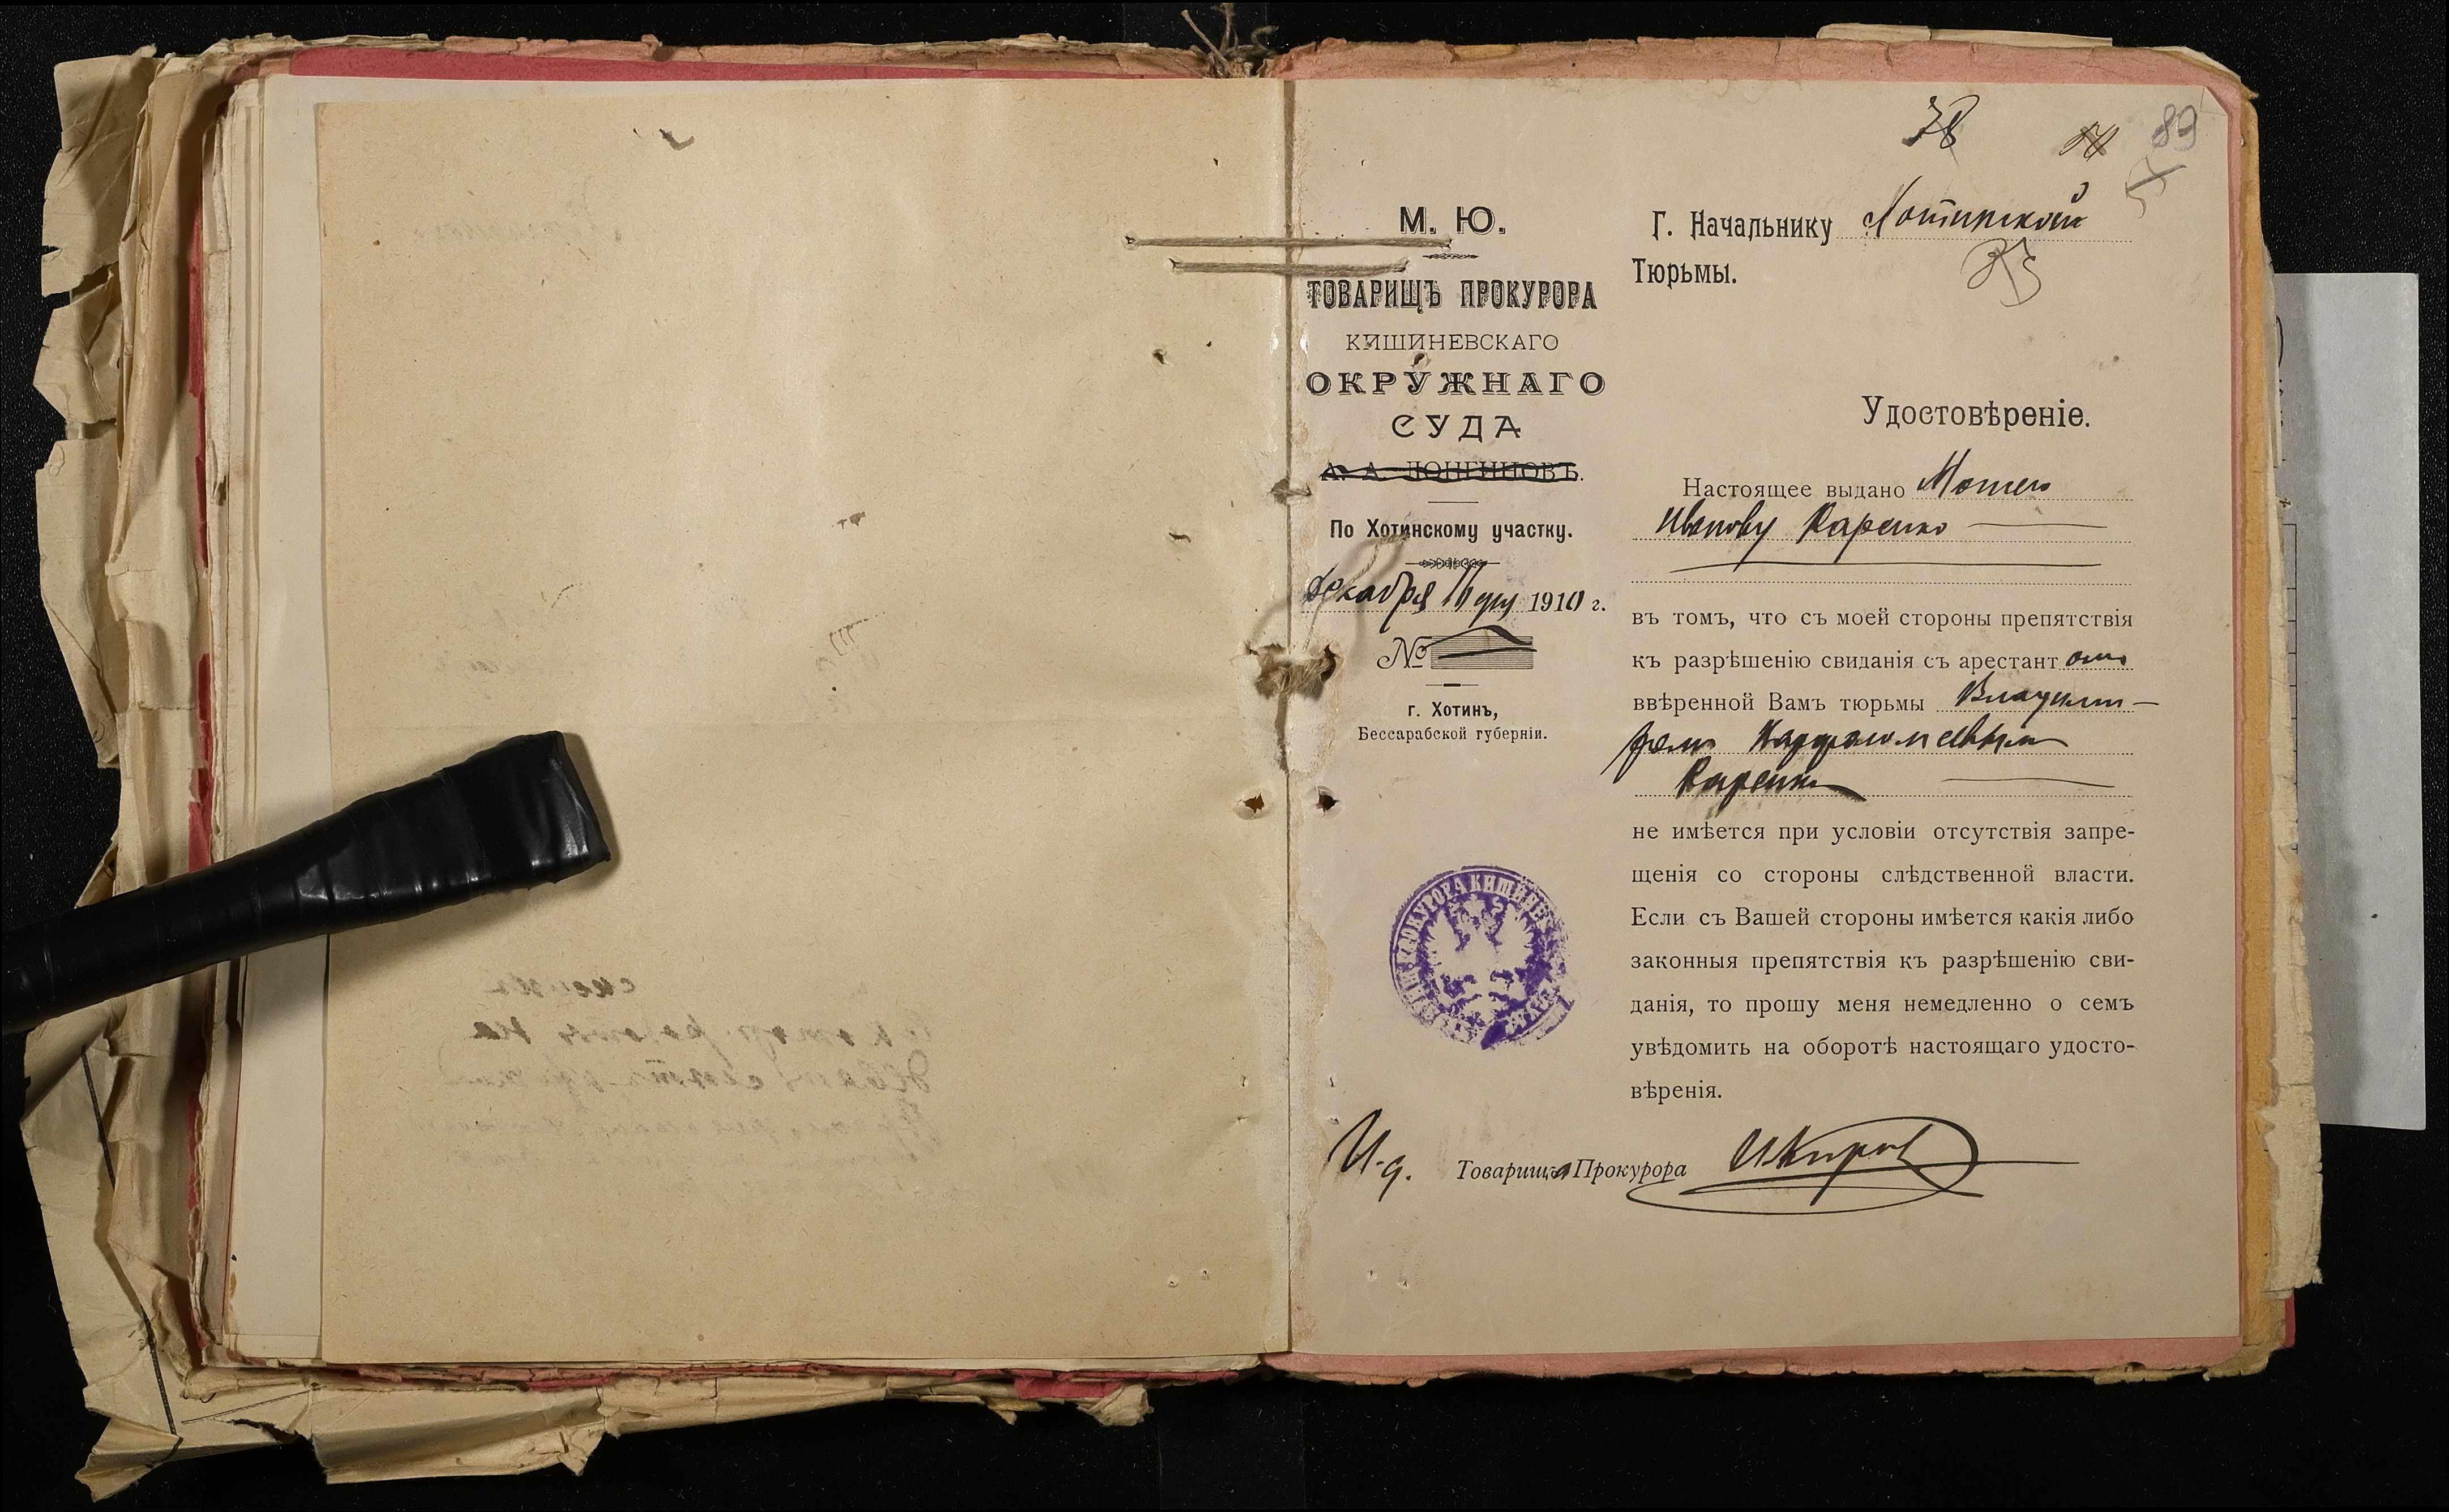 38
89
М. Ю.
ТОВАРИЩЪ ПРОКУРОРА
КИШИНЕВСКАГО
ОКРУЖНАГО
СУДА
А. А. ЛОНГИНОВЪ.
По Хотинскому участку.
Декабря 16 дня 1910 г.
№
г. Хотинъ,
Бессарабской губерніи.
Г. Начальнику Хотинской
Тюрьмы.
Удостовѣреніе.
Настоящее выдано
Иванову Каренко
въ томъ, что съ моей стороны препятствія
къ разрѣшенію свиданія съ арестант омъ
ввѣренной Вамъ тюрьмы Владими-
ромъ Варфоломеевымъ
Каренко
не имѣется при условіи отсутствія запре-
щенія со стороны слѣдственной власти.
Если съ Вашей стороны имѣется какія либо
законныя препятствія къ разрѣшенію сви-
данія, то прошу меня немедленно о семъ
увѣдомить на оборотѣ настоящаго удосто-
вѣренія.
И. д. Товарища Прокурора